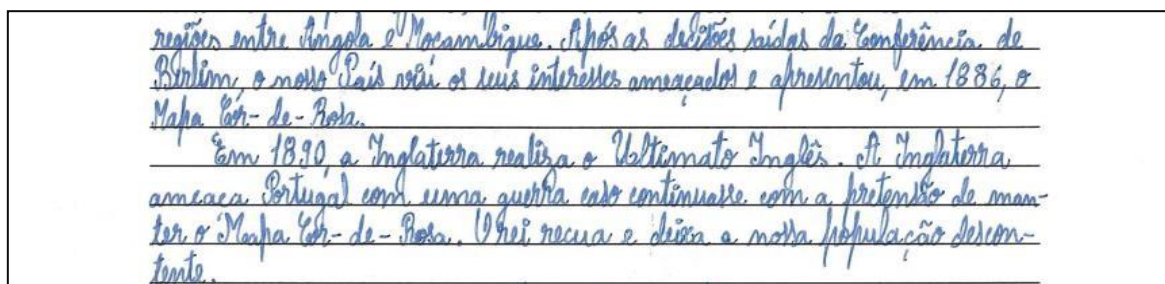 regiões entre Angola e Moçambique. Após as decisões saídas da Conferência de
Berlim, o nosso País viu os seus interesses ameaçados e apresentou, em 1886, o
Mapa Cor-de-Rosa.
Em 1890, a Inglaterra realiza o Ultimato Inglês. A Inglaterra
ameaça Portugal com uma guerra caso continuasse com a pretensão de man-
ter o Mapa Cor-de-Rosa. O rei recua e deixa a nossa população descon-
tente.